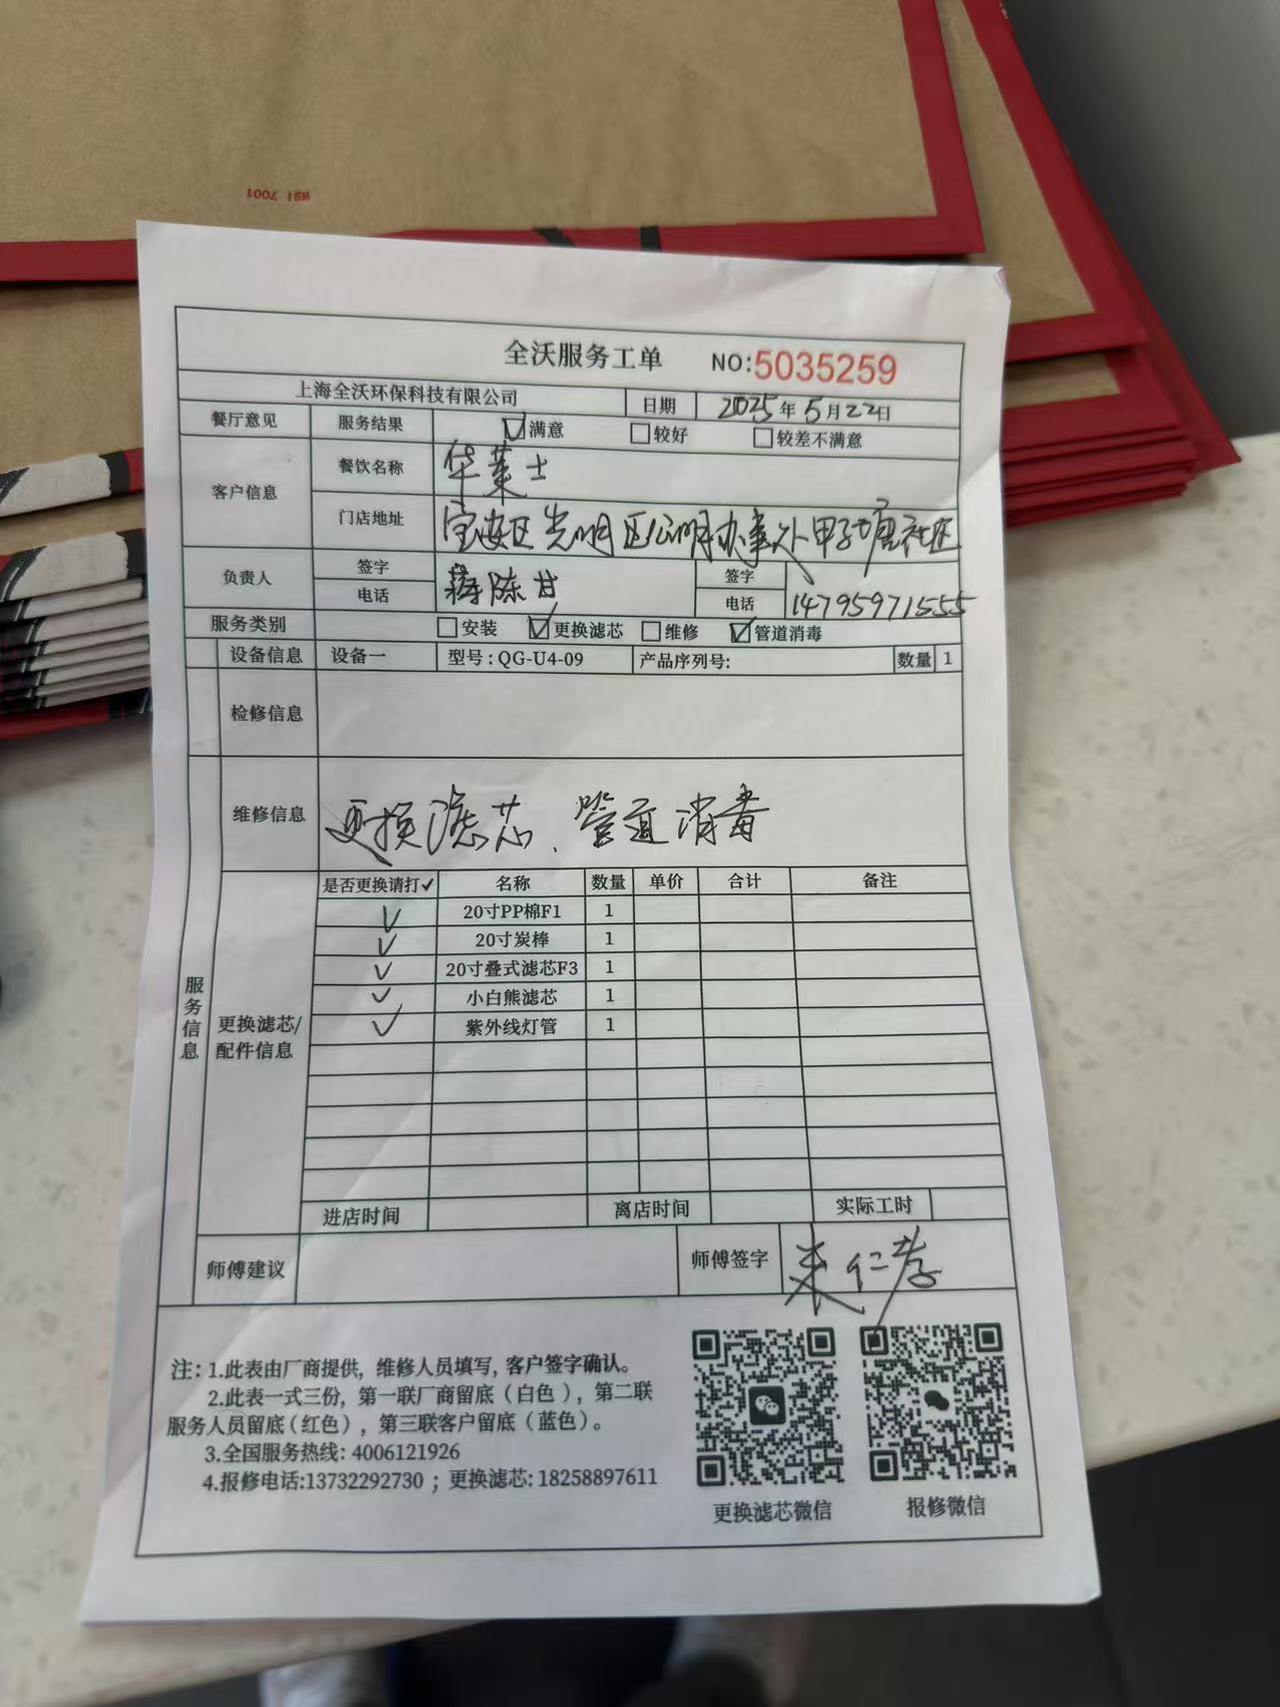 W81 7001
全沃服务工单 NO:5035259
上海全沃环保科技有限公司 日期 2025年5月22日
餐厅意见 服务结果 满意 较好 较差不满意
客户信息 餐饮名称 华莱士
门店地址 宝安区光明区公明办事处甲子塘社区
负责人 签字 陈甘 签字
电话 电话 14795971555
服务类别 安装 更换滤芯 维修 管道消毒
设备信息 设备一 型号:QG-U4-09 产品序列号: 数量 1
检修信息
维修信息 更换滤芯、管道消毒
服务信息
更换滤芯/配件信息
是否更换请打✓ 名称 数量 单价 合计 备注
✓ 20寸PP棉F1 1
✓ 20寸炭棒 1
✓ 20寸叠式滤芯F3 1
✓ 小白熊滤芯 1
✓ 紫外线灯管 1
进店时间 离店时间 实际工时
师傅建议 师傅签字 仁孝
注:1.此表由厂商提供,维修人员填写,客户签字确认。
2.此表一式三份,第一联厂商留底(白色),第二联
服务人员留底(红色),第三联客户留底(蓝色)。
3.全国服务热线:4006121926
4.报修电话:13732292730 ;更换滤芯:18258897611
更换滤芯微信 报修微信